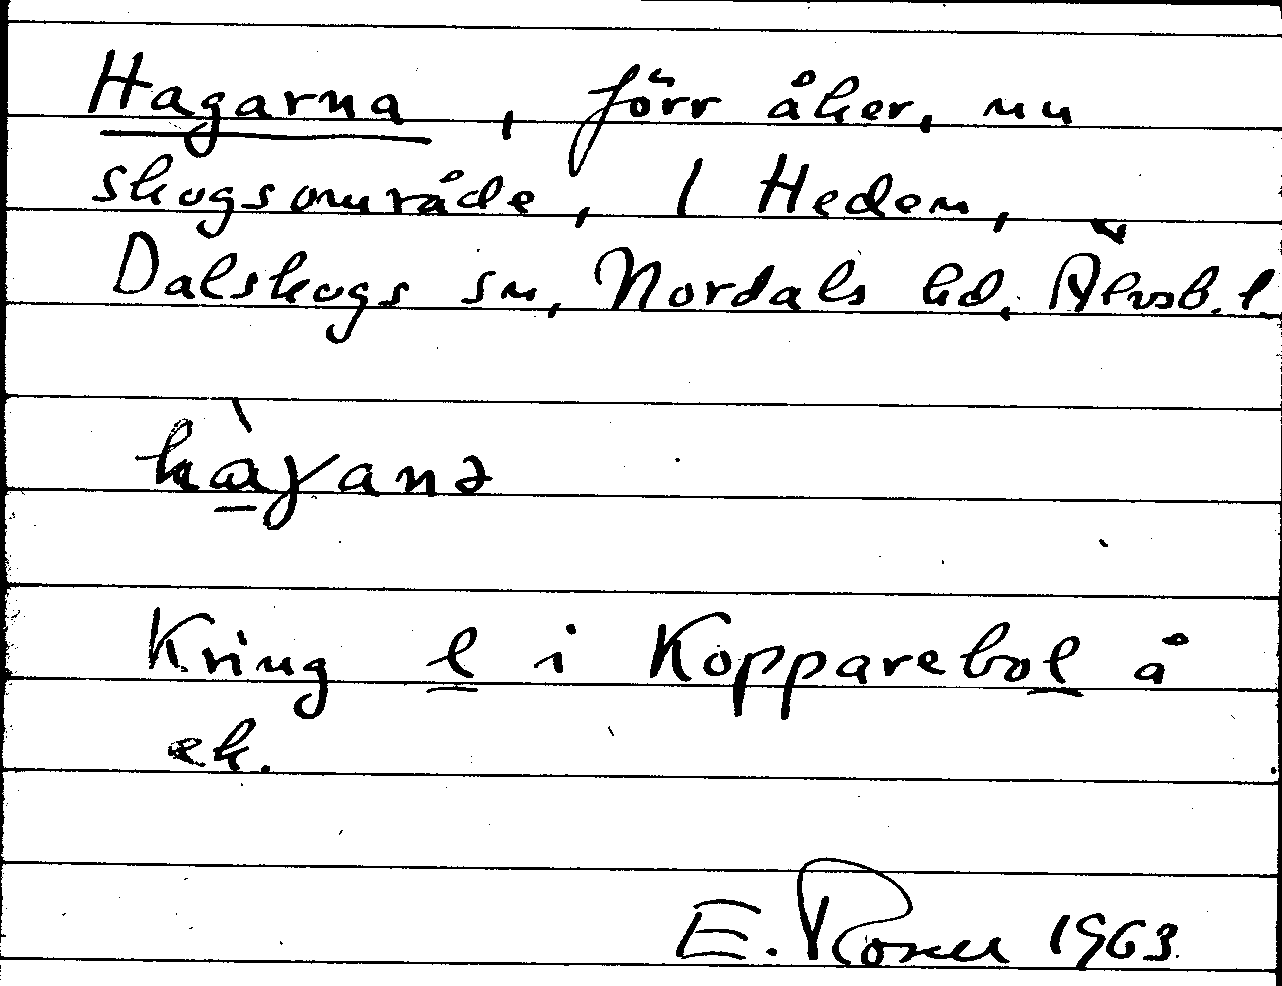 Hagarna, förr åker, nu
skogsområde, 1 Heden,
Dalskogs sn, Nordals hd, Älvsb. l.
hàɣanə
Kring l i Kopparebol å
ek.
E. Rosell 1963.